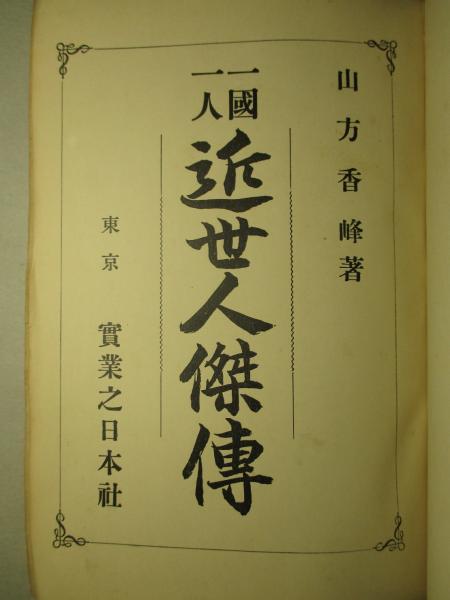 山方香峰著
一國
一人
近世人傑傳
東京
實業之日本社